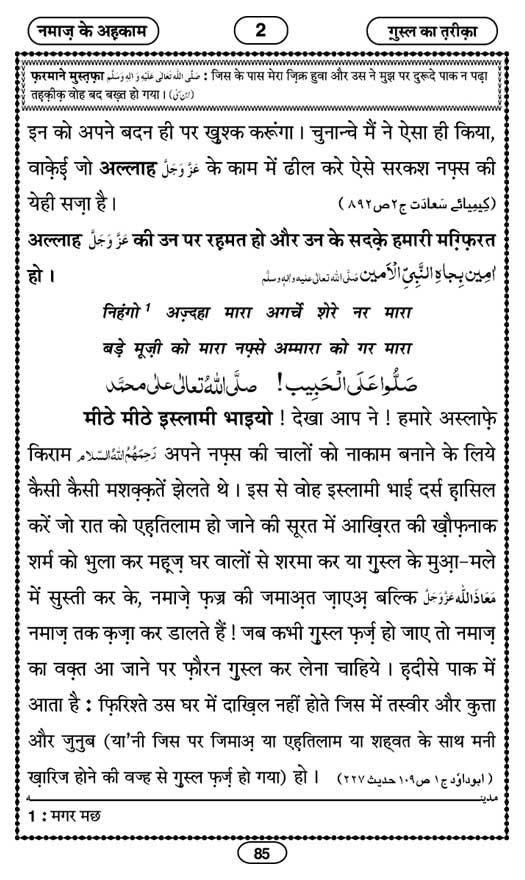 नमाज़ के अहकाम
2
ग़ुस्ल का त़रीक़ा
फ़रमाने मुस्त़फ़ा صَلَّى اللهُ تَعَالٰى عَلَيْهِ وَاٰلِهٖ وَسَلَّم : जिस के पास मेरा ज़िक्र हुवा और उस ने मुझ पर दुरूदे पाक न पढ़ा
तह़क़ीक़ वोह बद बख़्त हो गया।
इन को अपने बदन ही पर ख़ुश्क करूंगा। चुनान्चे मैं ने ऐसा ही किया,
वाक़ेई जो अल्लाह عَزَّوَجَلَّ के काम में ढील करे ऐसे सरकश नफ़्स की
येही सज़ा है। (کیمیائے سَعادَت ج۲ص۸۹۲)
अल्लाह عَزَّوَجَلَّ की उन पर रह़मत हो और उन के सदक़े हमारी मग़्फ़िरत
हो। اٰمِين بِجَاهِ النَّبِيِّ الْاَمين صَلَّى اللهُ تعالٰى عليه واٰلهٖ وسلَّم
निहंगो¹ अज़्दहा मारा अगर्चे शेरे नर मारा
बड़े मूज़ी को मारा नफ़्से अम्मारा को गर मारा
صَلُّوا عَلَى الْحَبِيب! صلَّى اللهُ تعالٰى علٰى محمَّد
मीठे मीठे इस्लामी भाइयो ! देखा आप ने ! हमारे अस्लाफ़े
किराम رَحِمَهُمُ اللهُ السّلام अपने नफ़्स की चालों को नाकाम बनाने के लिये
कैसी कैसी मशक़्क़तें झेलते थे। इस से वोह इस्लामी भाई दर्स ह़ासिल
करें जो रात को एह़तिलाम हो जाने की सूरत में आख़िरत की ख़ौफ़नाक
शर्म को भुला कर मह़ूज़ घर वालों से शरमा कर या ग़ुस्ल के मुआ़-मले
में सुस्ती कर के, नमाज़े फ़ज्र की जमाअ़त ज़ाएअ़ बल्कि مَعَاذَ اللّٰه عَزَّوَجَلَّ
नमाज़ तक क़ज़ा कर डालते हैं ! जब कभी ग़ुस्ल फ़र्ज़ हो जाए तो नमाज़
का वक़्त आ जाने पर फ़ौरन ग़ुस्ल कर लेना चाहिये। ह़दीसे पाक में
आता है : फ़िरिश्ते उस घर में दाख़िल नहीं होते जिस में तस्वीर और कुत्ता
और जुनुब (या'नी जिस पर जिमाअ़ या एह़तिलाम या शह्वत के साथ मनी
ख़ारिज होने की वज्ह से ग़ुस्ल फ़र्ज़ हो गया) हो। (ابوداوٗد ج۱ ص۱۰۹ حدیث ۲۲۷)
مدینہ
1 : मगर मछ
85